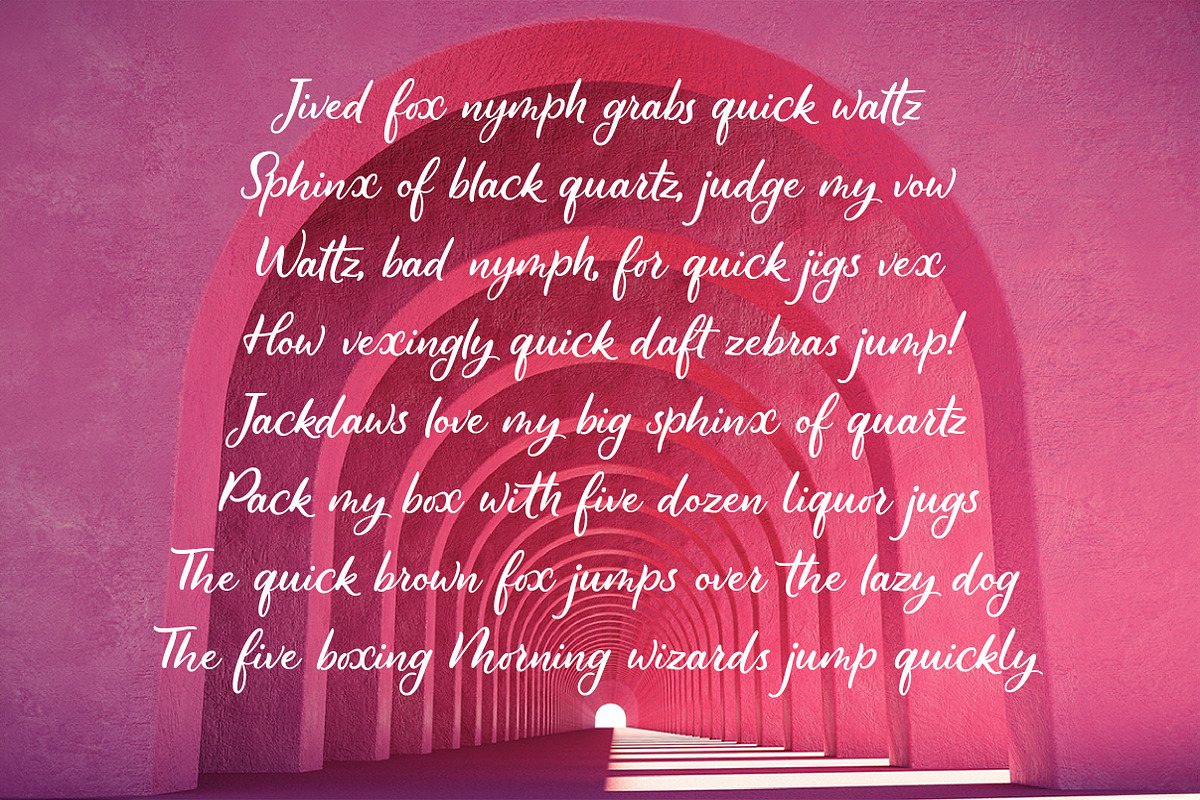 Jived fox nymph grabs quick waltz
Sphinx of black quartz, judge my vow
Waltz, bad nymph, for quick jigs vex
How vexingly quick daft zebras jump!
Jackdaws love my big sphinx of quartz
Pack my box with five dozen liquor jugs
The quick brown fox jumps over the lazy dog
The five boxing Morning wizards jump quickly